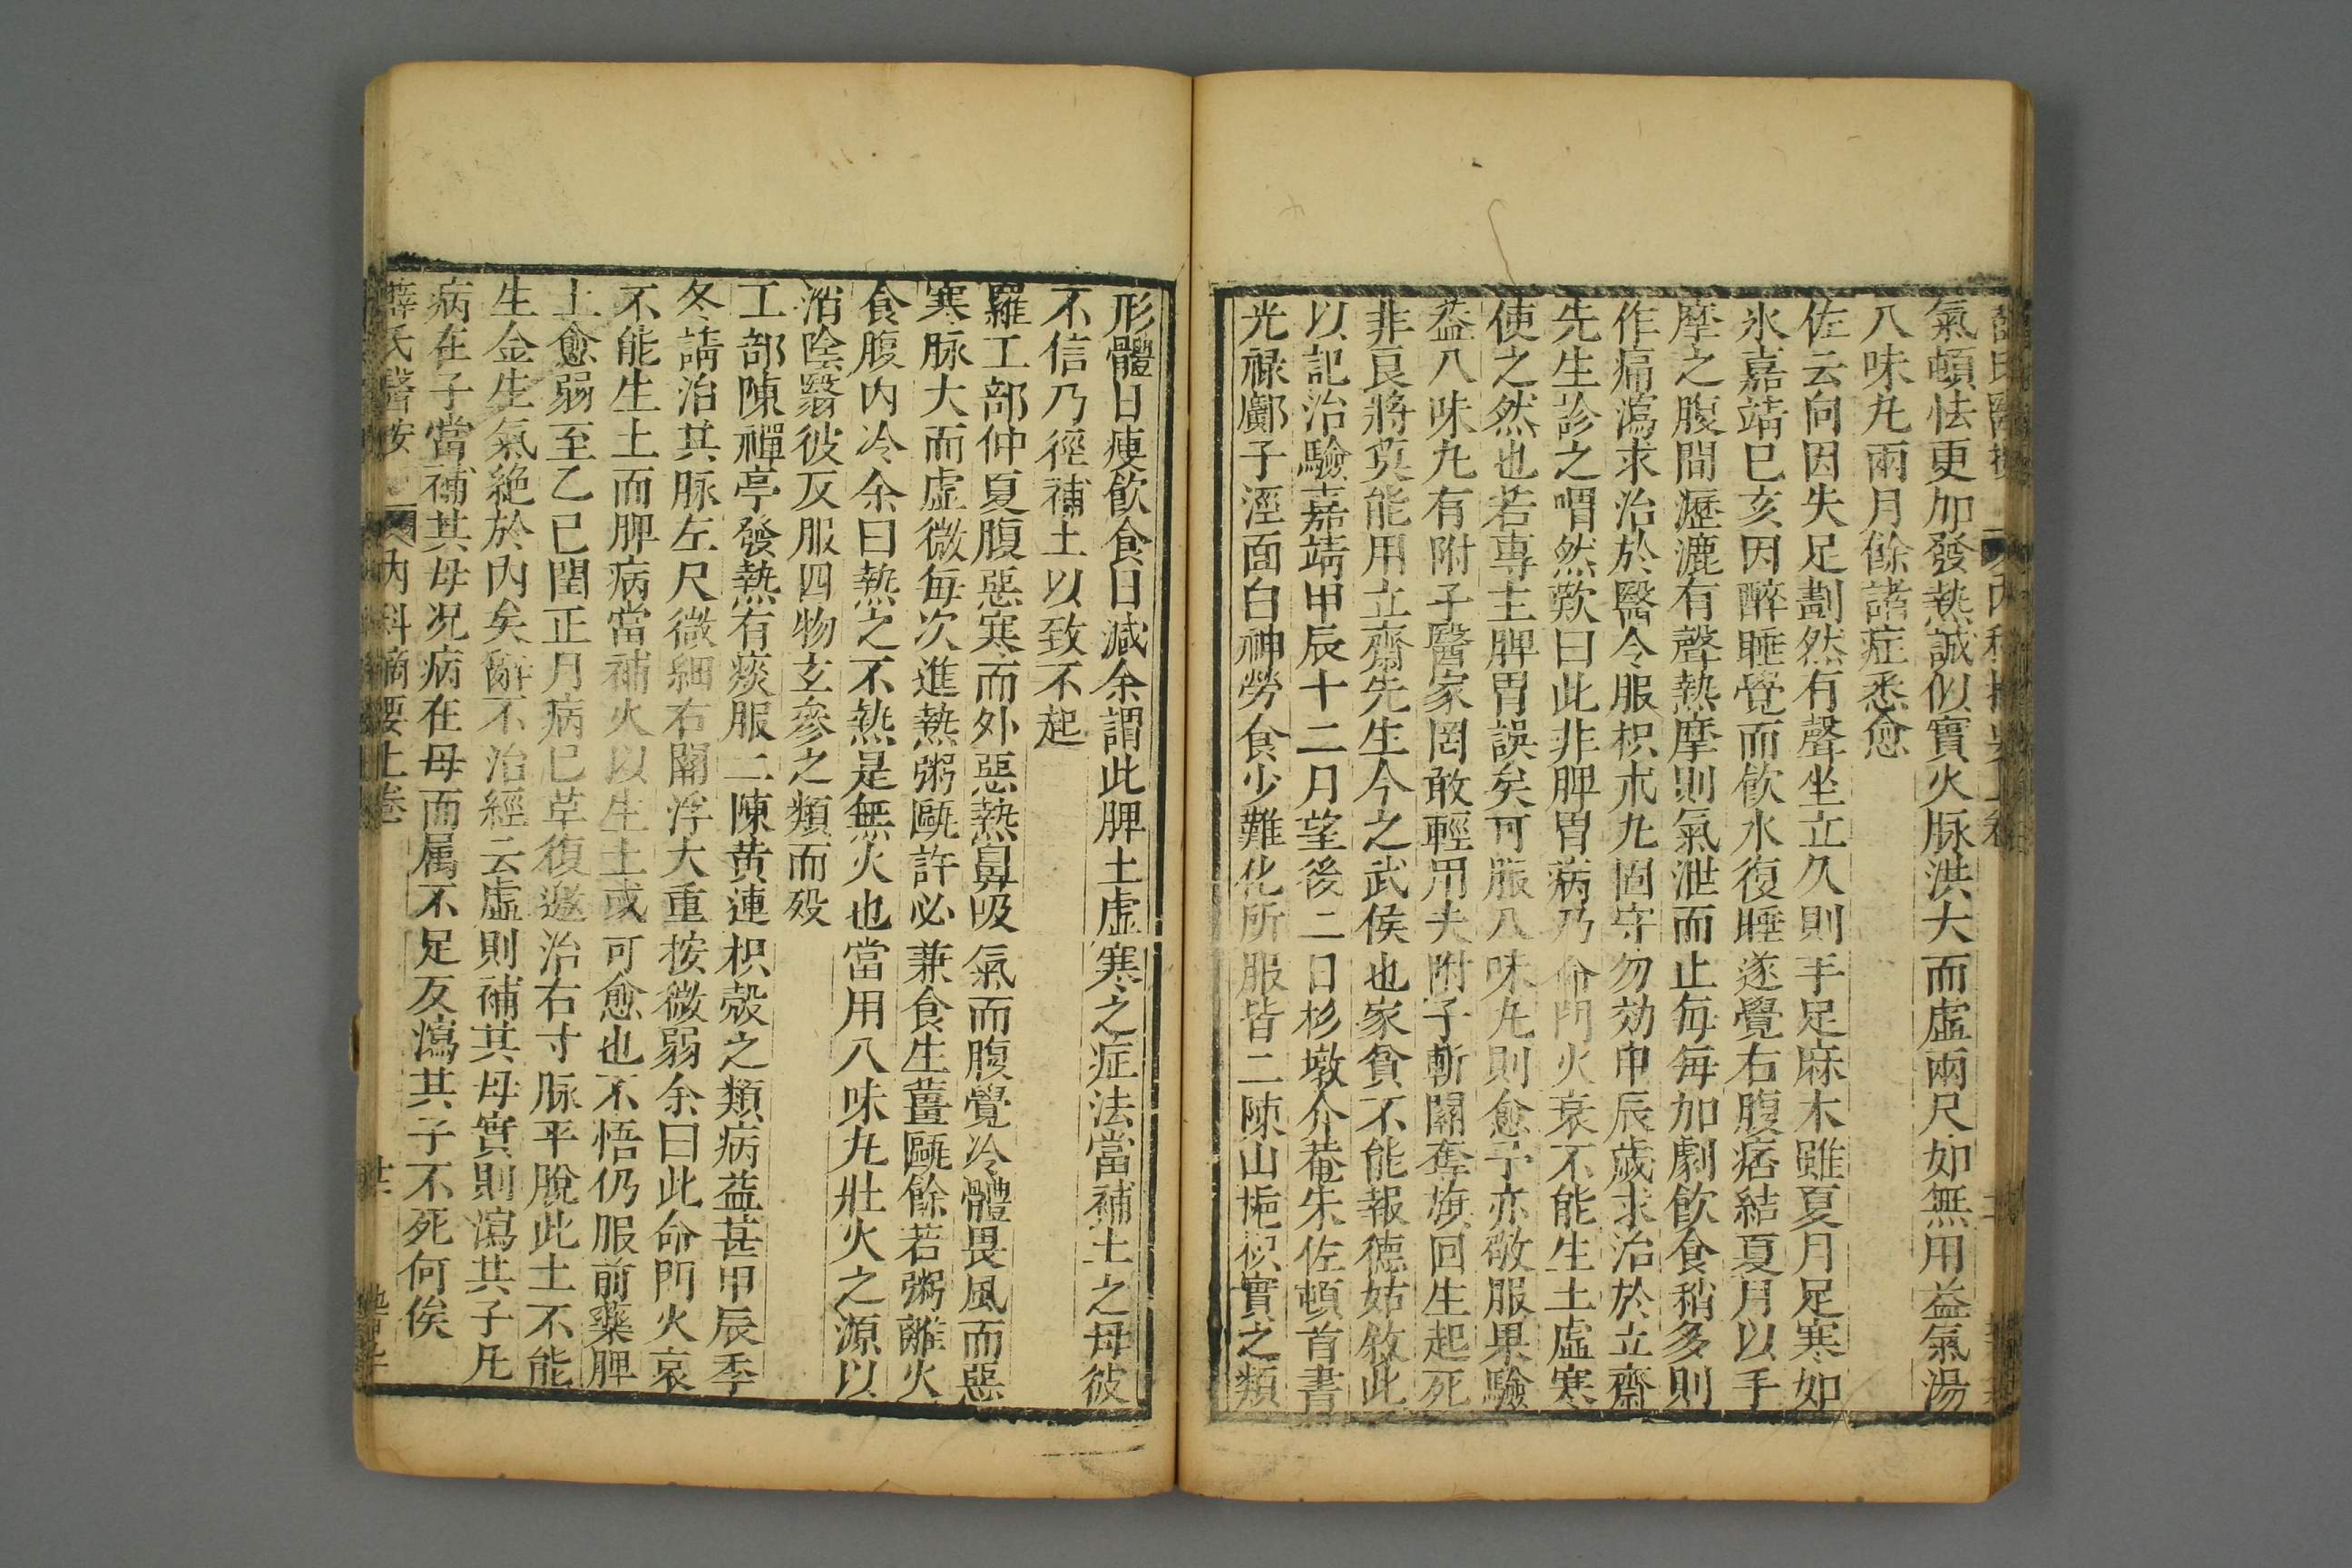 氣頓怯更加發熱誠似實火脉洪大而虛兩尺如無用益氣湯
八味丸兩月餘諸症悉愈
佐云向因失足劃然有聲坐立久則手足麻木雖夏月足寒如
氷嘉靖巳亥因醉睡覺而飲水復睡遂覺右腹痞結夏月以手
摩之腹間瀝漉有聲熱摩則氣泄而止每每加劇飲食稍多則
作痛瀉求治於醫令服枳朮丸固守勿効甲辰歲求治於立齋
先生診之喟然歎曰此非脾胃病乃命門火衰不能生土虛寒
使之然也若專主脾胃誤矣可服八味丸則愈予亦敬服果驗
益八味丸有附子醫家罔敢輕用夫附子斬關奪旗回生起死
非良將莫能用立齋先生今之武侯也家貧不能報德姑敘此
以記治驗嘉靖甲辰十二月望後二日杉墩介菴朱佐頓首書
光祿鄺子涇面白神勞食少難化所服皆二陳山梔枳實之類
形體日瘦飲食日減余謂此脾土虛寒之症法當補土之母彼
不信乃徑補土以致不起
羅工部仲夏腹惡寒而外惡熱鼻吸氣而腹覺冷體畏風而惡
寒脉大而虛微每次進熱粥甌許必兼食生薑甌餘若粥離火
食腹內冷余曰熱之不熱是無火也當用八味丸壯火之源以
消陰翳彼反服四物玄參之類而歿
工部陳禪亭發熱有痰服二陳黃連枳殼之類病益甚甲辰季
冬請治其脉左尺微細右關浮大重按微弱余曰此命門火衰
不能生土而脾病當補火以生土或可愈也不悟仍服前藥脾
土愈弱至乙巳閏正月病已革復邀治右寸脉平脫此土不能
生金生氣絕於內矣辭不治經云虛則補其母實則瀉其子凡
病在子當補其母况病在母而属不足反瀉其子不死何俟
薛氏醫按 內科摘要上卷